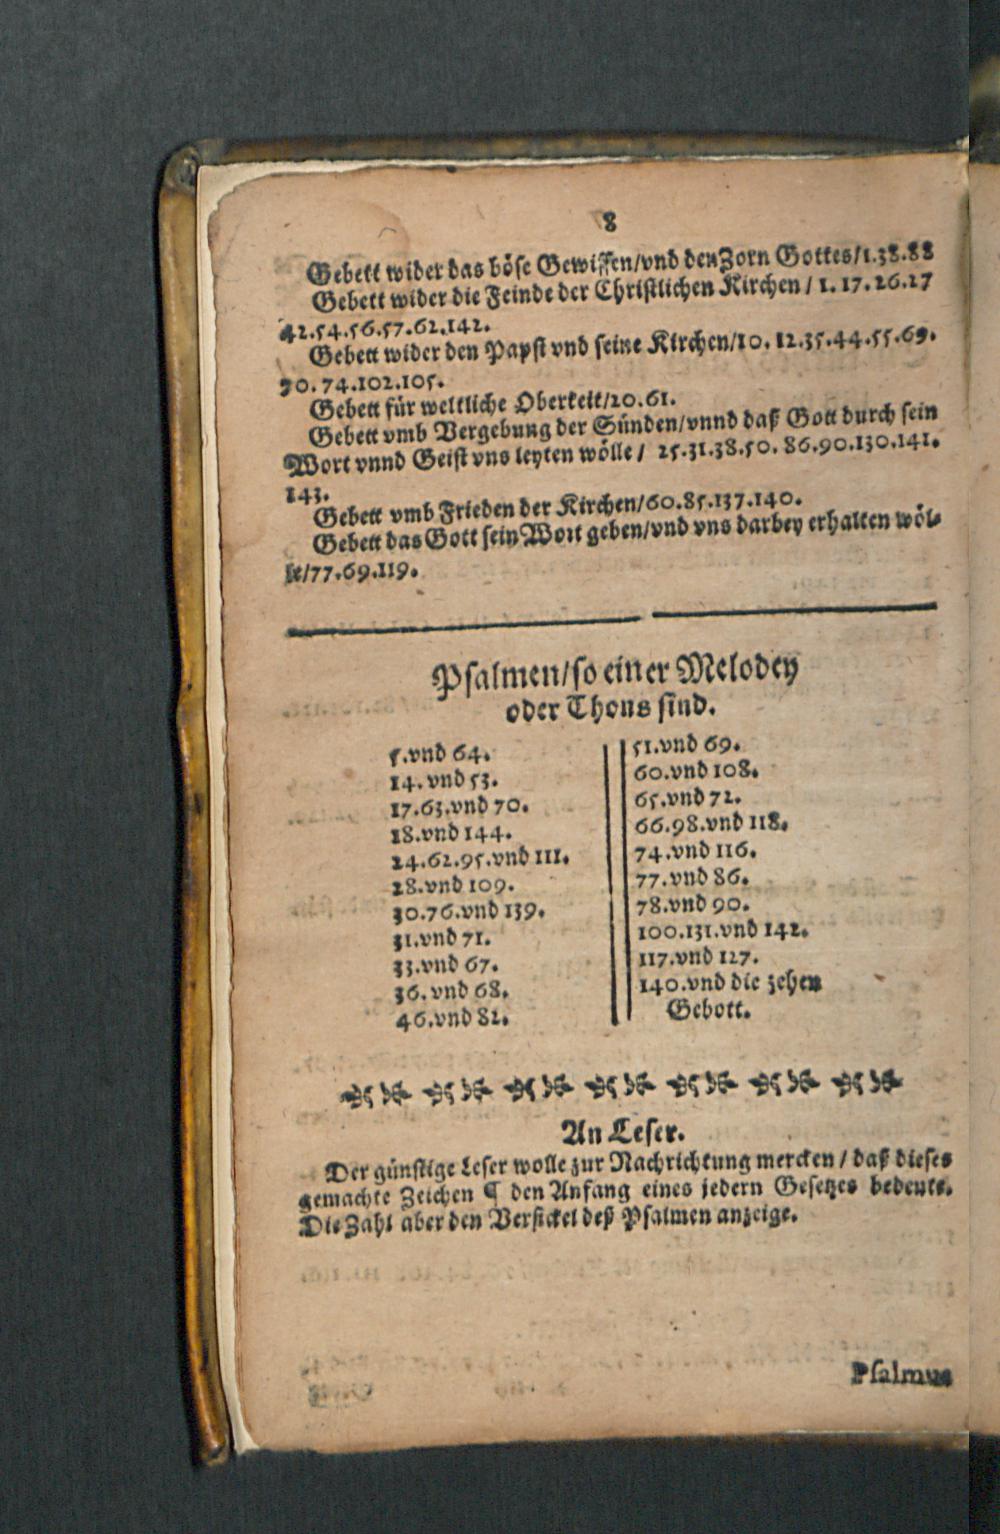 8
Gebett wider das böse Gewissen/vnd den Zorn Gottes/1.38.88
Gebett wider die Feinde der Christlichen Kirchen/1.17.26.27
42.54.56.57.62.142.
Gebett wider den Papst vnd seine Kirchen/10.12.35.44.55.69.
70.74.102.105.
Gebett für weltliche Oberkeit/20.61.
Gebett vmb Vergebung der Sünden/vnnd daß Gott durch sein
Wort vnnd Geist vns leyten wölle/ 25.31.38.50.86.90.130.141.
143.
Gebett vmb Frieden der Kirchen/60.85.137.140.
Gebett das Gott sein Wort geben/vnd vns darbey erhalten wöl-
le/77.69.119.
Psalmen/so einer Melodey
oder Thons sind.
5.vnd 64.
14.vnd 53.
17.63.vnd 70.
18.vnd 144.
24.62.95.vnd 111.
28.vnd 109.
30.76.vnd 139.
31.vnd 71.
33.vnd 67.
36.vnd 68.
46.vnd 82.
51.vnd 69.
60.vnd 108.
65.vnd 72.
66.98.vnd 118.
74.vnd 116.
77.vnd 86.
78.vnd 90.
100.131.vnd 142.
117.vnd 127.
140.vnd die zehen
Gebott.
An Leser.
Der günstige Leser wolle zur Nachrichtung mercken/daß dieses
gemachte Zeichen ¶ den Anfang eines jedern Gesetzes bedeute.
Die Zahl aber den Versickel deß Psalmen anzeige.
Psalmus